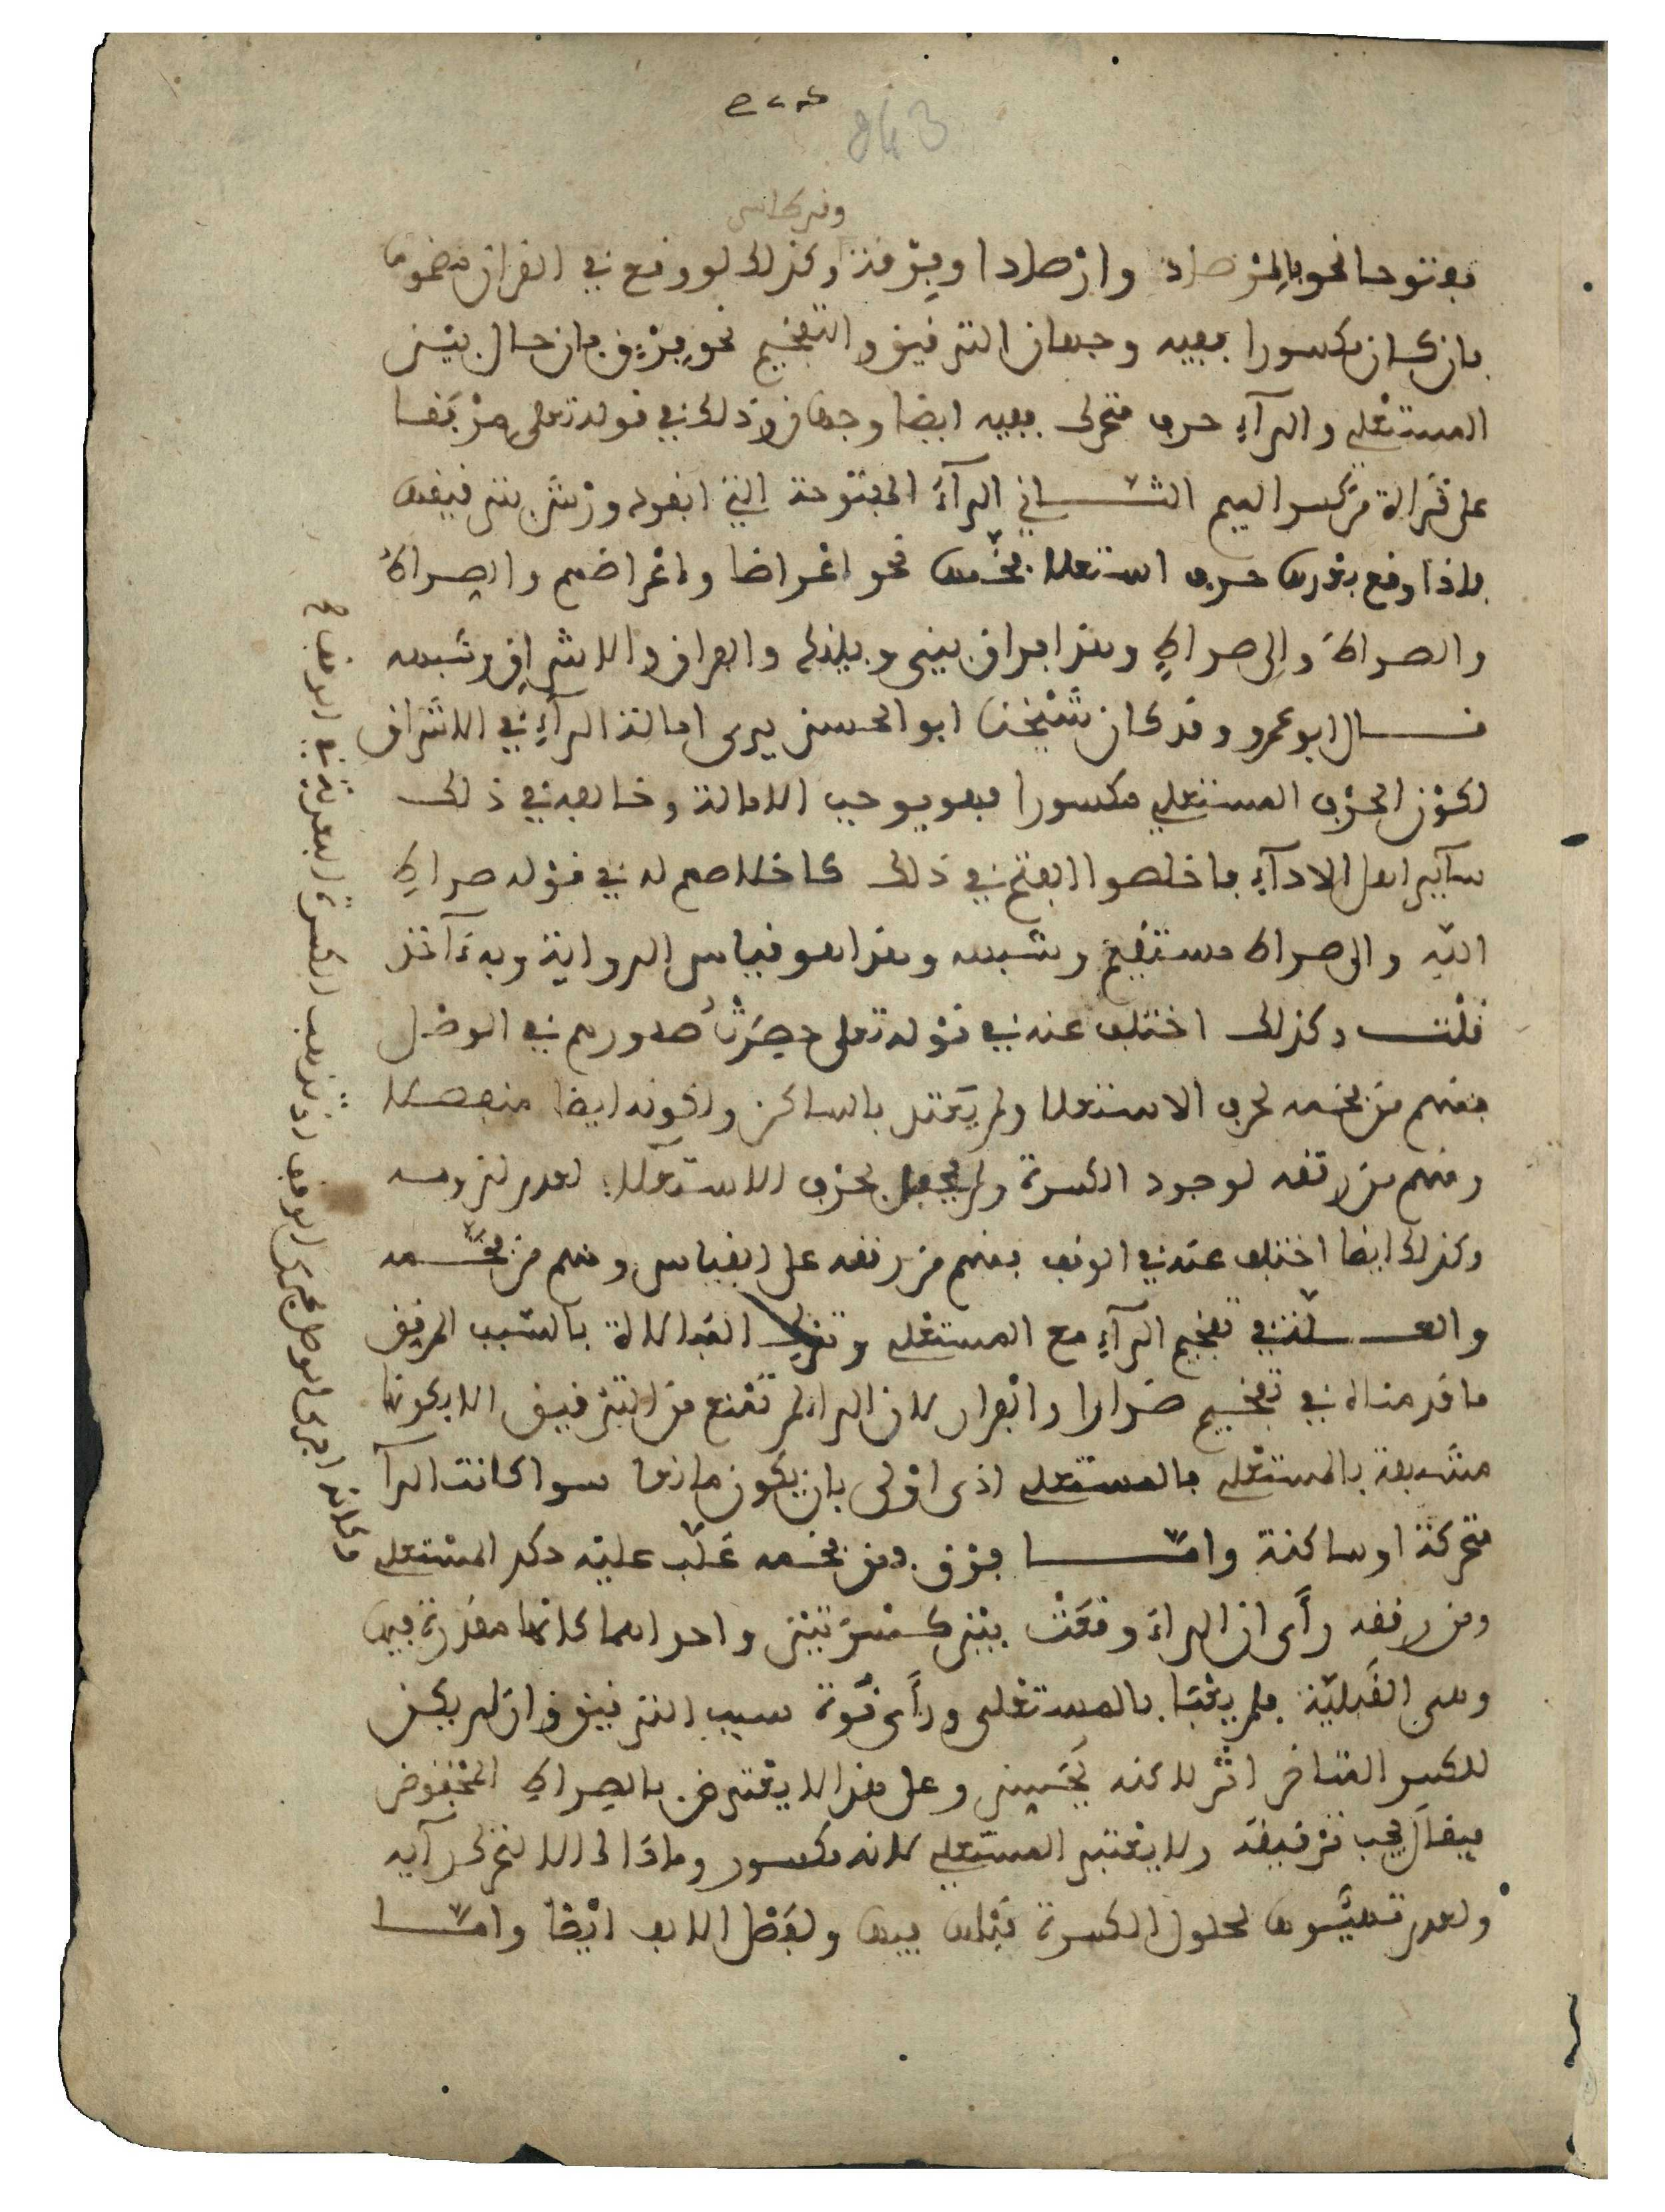 243
وقرطاس
مفتوحا نحو بالمرصاد وارصادا وفرقة وكذلك لو وقع في القران مضموما
فان كان مكسورا ففيه وجهان الترقيق والتفخيم نحو فرق فان حال بين
المستعلي والرآء حرف متحرك ففيه ايضا وجهان وذلك في قوله تعلى مرفقا
على قراءة من كسر الميم الثاني الرآء المفتوحة التي انفرد ورش بترقيقها
فاذا وقع بعدها حرف استعلاء فخمها نحو اعراضا واعراضهم والصراط
والصراط والى صراط وهذا فراق بيني وبينك والفراق والاشراق وشبهه
قال ابو عمرو وقد كان شيخنا ابو الحسن يرى امالة الرآء في الاشراق
لكون الحرف المستعلي مكسورا فهو يوجب الامالة وخالفه في ذلك
سآير اهل الادآء فاخلصوا الفتح في ذلك كاخلاصهم له في قوله صراط
الله والى صراط مستقيم وشبهه وهذا هو قياس الرواية وبه ءآخذ
قلت وكذلك اختلف عنه في قوله تعلى حصرت صدورهم في الوصل
فمنهم من فخمه لحرف الاستعلا ولم يعتد بالساكن ولكونه ايضا منفصلا
ومنهم من رققه لوجود الكسرة ولم يحفل بحرف الاستعلاء لعدم لزومه
وكذلك ايضا اختلف عنه في الوقف فمنهم من رققه على القياس ومنهم من فخمه
والعلة في تفخيم الرآء مع المستعلي وترك المبالاة بالسبب المرقق
ما قدمناه في تفخيم ضرارا والفرار لان الراء لم تمنع من الترقيق الا بكونها
مشبهة بالمستعلي فالمستعلي اذى اولى بان يكون مانعا سوا كانت الرآ
متحركة او ساكنة واما فرق فمن فخمه غلب عليه حكم المستعلي
ومن رققه رأى ان الراء وقعت بين كسرتين واحداهما كانها مقدرة فيها
وهي القبلية فلم يعبا بالمستعلي ورأى قوة سبب الترقيق وان لم يكن
للكسر المتاخر اثر لاكنه يحسن وعلى هذا لا يعترض بالصراط المخفوض
فيقال يجب ترقيقه ولا يعتبر المستعلي لانه مكسور وماذاك الا لتحرك رآيه
ولعدم تهيئها لحلول الكسرة قبلها فيها ولفصل الالف ايضا واما